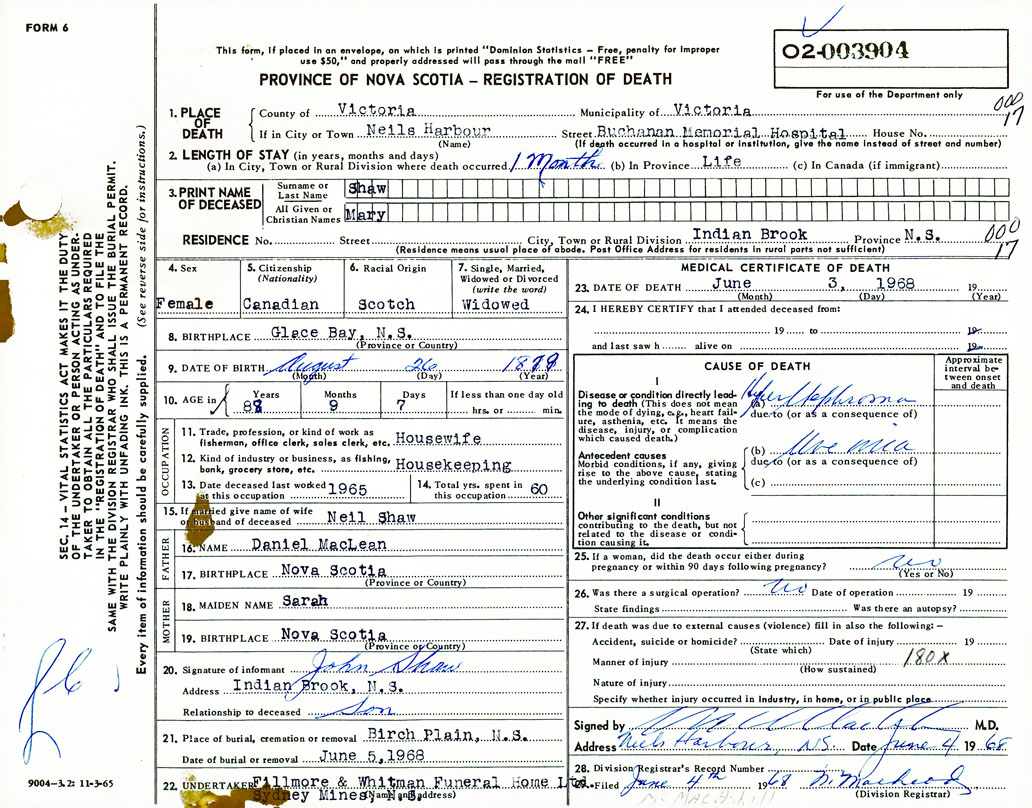 FORM 6
This form, if placed in an envelope, on which is printed "Dominion Statistics – Free, penalty for improper
use $50," and properly addressed will pass through the mail "FREE"
PROVINCE OF NOVA SCOTIA – REGISTRATION OF DEATH
02-003904
For use of the Department only
000
17
1. PLACE OF DEATH
County of Victoria Municipality of Victoria
If in City or Town Neils Harbour Street Buchanan Memorial Hospital House No.
(Name) (If death occurred in a hospital or institution, give the name instead of street and number)
2. LENGTH OF STAY (in years, months and days)
(a) In City, Town or Rural Division where death occurred 1 Month (b) In Province Life (c) In Canada (if immigrant)
3. PRINT NAME OF DECEASED
Surname or Last Name Shaw
All Given or Christian Names Mary
RESIDENCE No. Street City, Town or Rural Division Indian Brook Province N.S.
(Residence means usual place of abode. Post Office Address for residents in rural parts not sufficient)
000
17
4. Sex
Female
5. Citizenship
(Nationality)
Canadian
6. Racial Origin
Scotch
7. Single, Married,
Widowed or Divorced
(write the word)
Widowed
8. BIRTHPLACE Glace Bay, N.S.
(Province or Country)
9. DATE OF BIRTH August 26 1879
(Month) (Day) (Year)
10. AGE in
Years Months Days If less than one day old
88 9 7 hrs. or min.
OCCUPATION
11. Trade, profession, or kind of work as
fisherman, office clerk, sales clerk, etc. Housewife
12. Kind of industry or business, as fishing,
bank, grocery store, etc. Housekeeping
13. Date deceased last worked
at this occupation 1965
14. Total yrs. spent in
this occupation 60
15. If married give name of wife
or husband of deceased Neil Shaw
FATHER
16. NAME Daniel MacLean
17. BIRTHPLACE Nova Scotia
(Province or Country)
MOTHER
18. MAIDEN NAME Sarah
19. BIRTHPLACE Nova Scotia
(Province or Country)
20. Signature of informant John Shaw
Address Indian Brook, N.S.
Relationship to deceased Son
21. Place of burial, cremation or removal Birch Plain, N.S.
Date of burial or removal June 5,1968
22. UNDERTAKER Fillmore & Whitman Funeral Home Ltd.
Sydney Mines, N.S.
(Name and address)
MEDICAL CERTIFICATE OF DEATH
23. DATE OF DEATH June 3, 1968 19
(Month) (Day) (Year)
24. I HEREBY CERTIFY that I attended deceased from:
19 to 19
and last saw h alive on 19
CAUSE OF DEATH
Approximate interval between onset and death
I
Disease or condition directly leading to death (This does not mean the mode of dying, e.g., heart failure, asthenia, etc. It means the disease, injury, or complication which caused death.)
(a) Hypernephroma
due to (or as a consequence of)
Antecedent causes
Morbid conditions, if any, giving rise to the above cause, stating the underlying condition last.
(b) Uremia
due to (or as a consequence of)
(c)
II
Other significant conditions
contributing to the death, but not related to the disease or condition causing it.
25. If a woman, did the death occur either during
pregnancy or within 90 days following pregnancy? no
(Yes or No)
26. Was there a surgical operation? no Date of operation 19
State findings Was there an autopsy?
27. If death was due to external causes (violence) fill in also the following: –
Accident, suicide or homicide? Date of injury 19
(State which)
Manner of injury 180X
(How sustained)
Nature of injury
Specify whether injury occurred in Industry, in home, or in public place
Signed by M.D.
Address Neils Harbour, NS Date June 4 1968
28. Division Registrar's Record Number
29. Filed June 4th 1968
(Division Registrar)
SEC. 14 – VITAL STATISTICS ACT MAKES IT THE DUTY
OF THE UNDERTAKER OR PERSON ACTING AS UNDER-
TAKER TO OBTAIN ALL THE PARTICULARS REQUIRED
IN THE "REGISTRATION OF DEATH" AND TO FILE THE
SAME WITH THE DIVISION REGISTRAR WHO SHALL ISSUE THE BURIAL PERMIT.
WRITE PLAINLY WITH UNFADING INK. THIS IS A PERMANENT RECORD.
Every item of information should be carefully supplied. (See reverse side for instructions.)
9004-3.2: 11-3-65